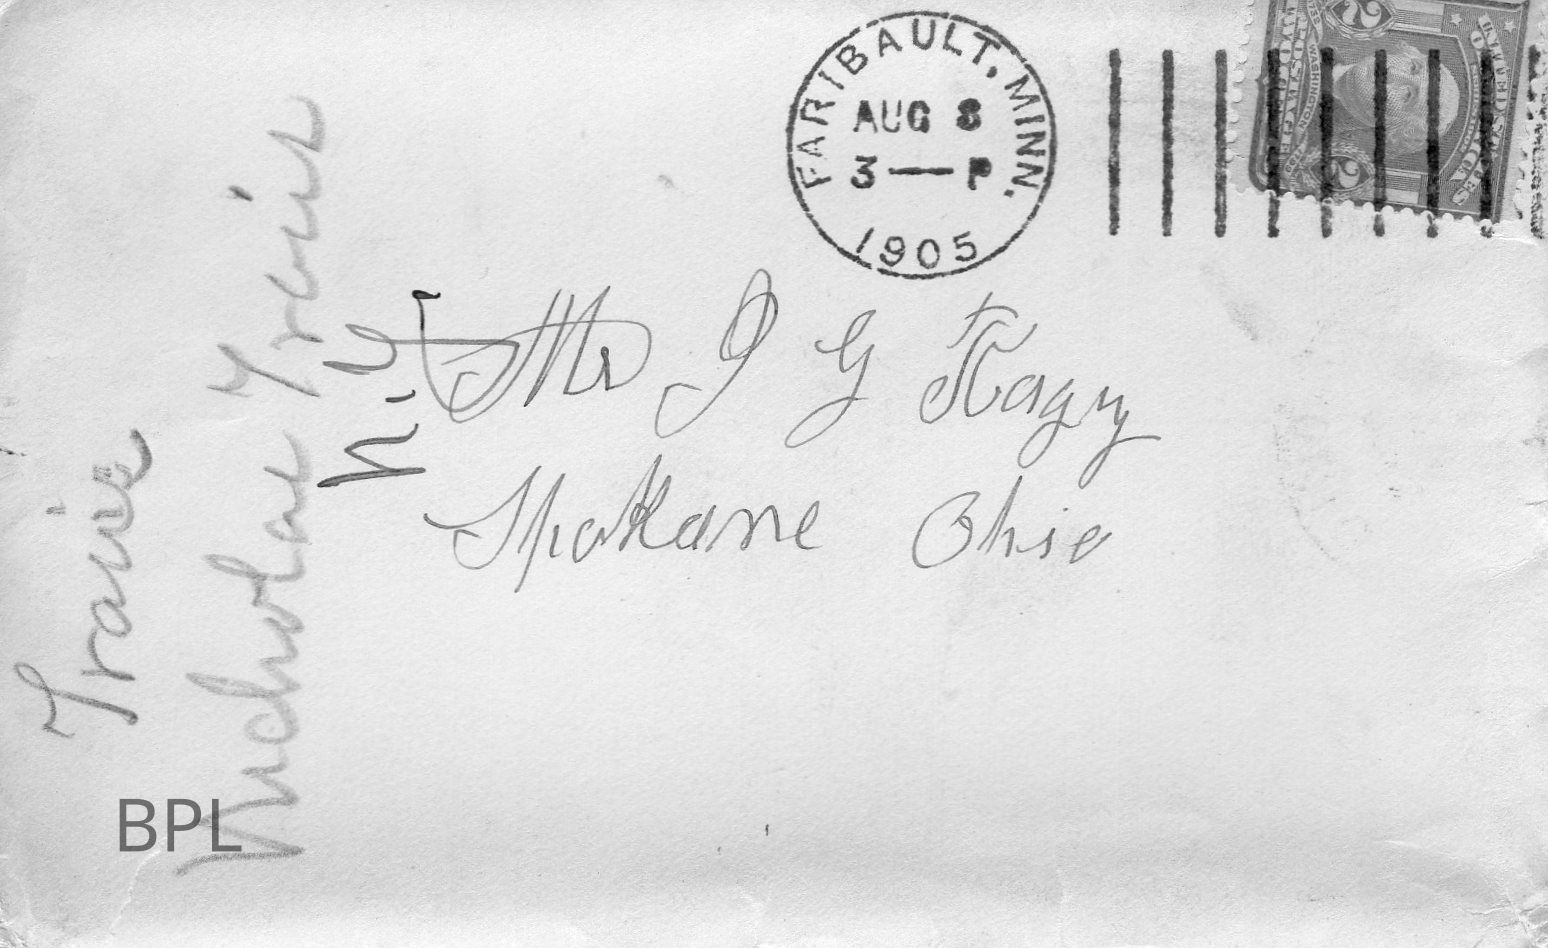 FARIBAULT, MINN.
AUG 8
3 — P
1905
Mr J G Kagy
Spokane Ohio
N.Y.
Travis
Nicholas Travis
BPL